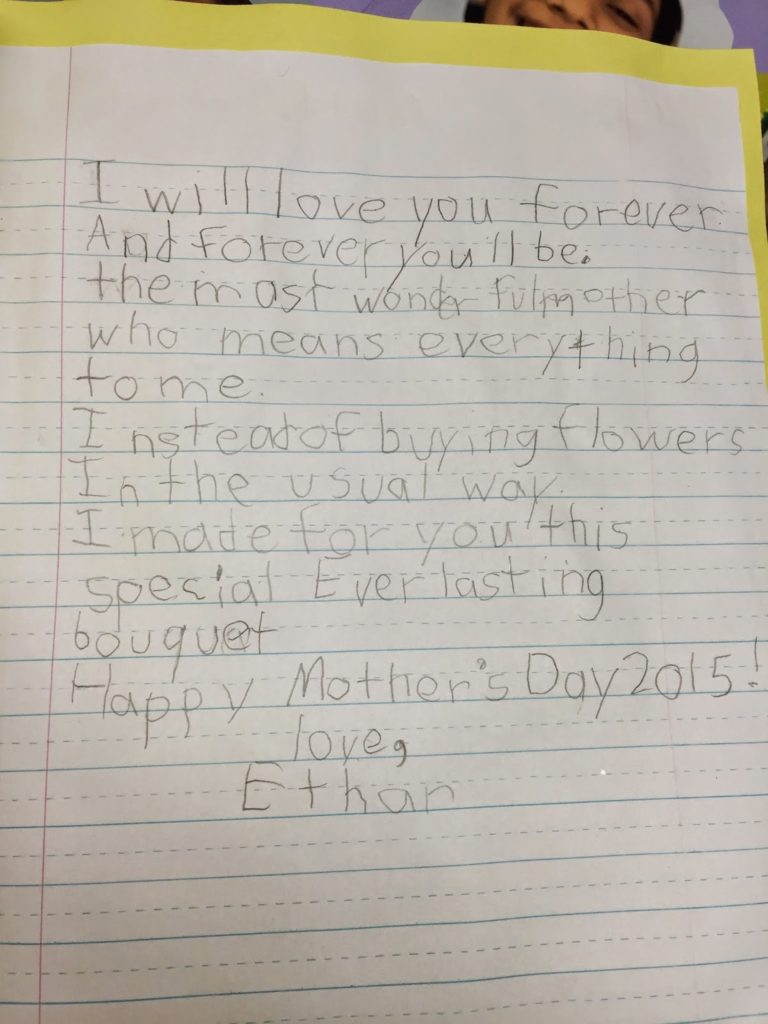 I will love you forever
And forever you'll be.
the most wonderfulmother
who means everything
to me.
Insteadof buying flowers
In the usual way.
I made for you this
special Everlasting
bouquet
Happy Mother's Day 2015!
love,
Ethan